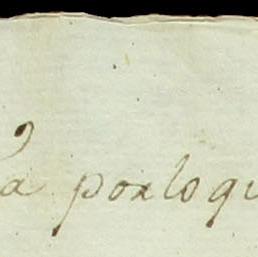 a porloqu